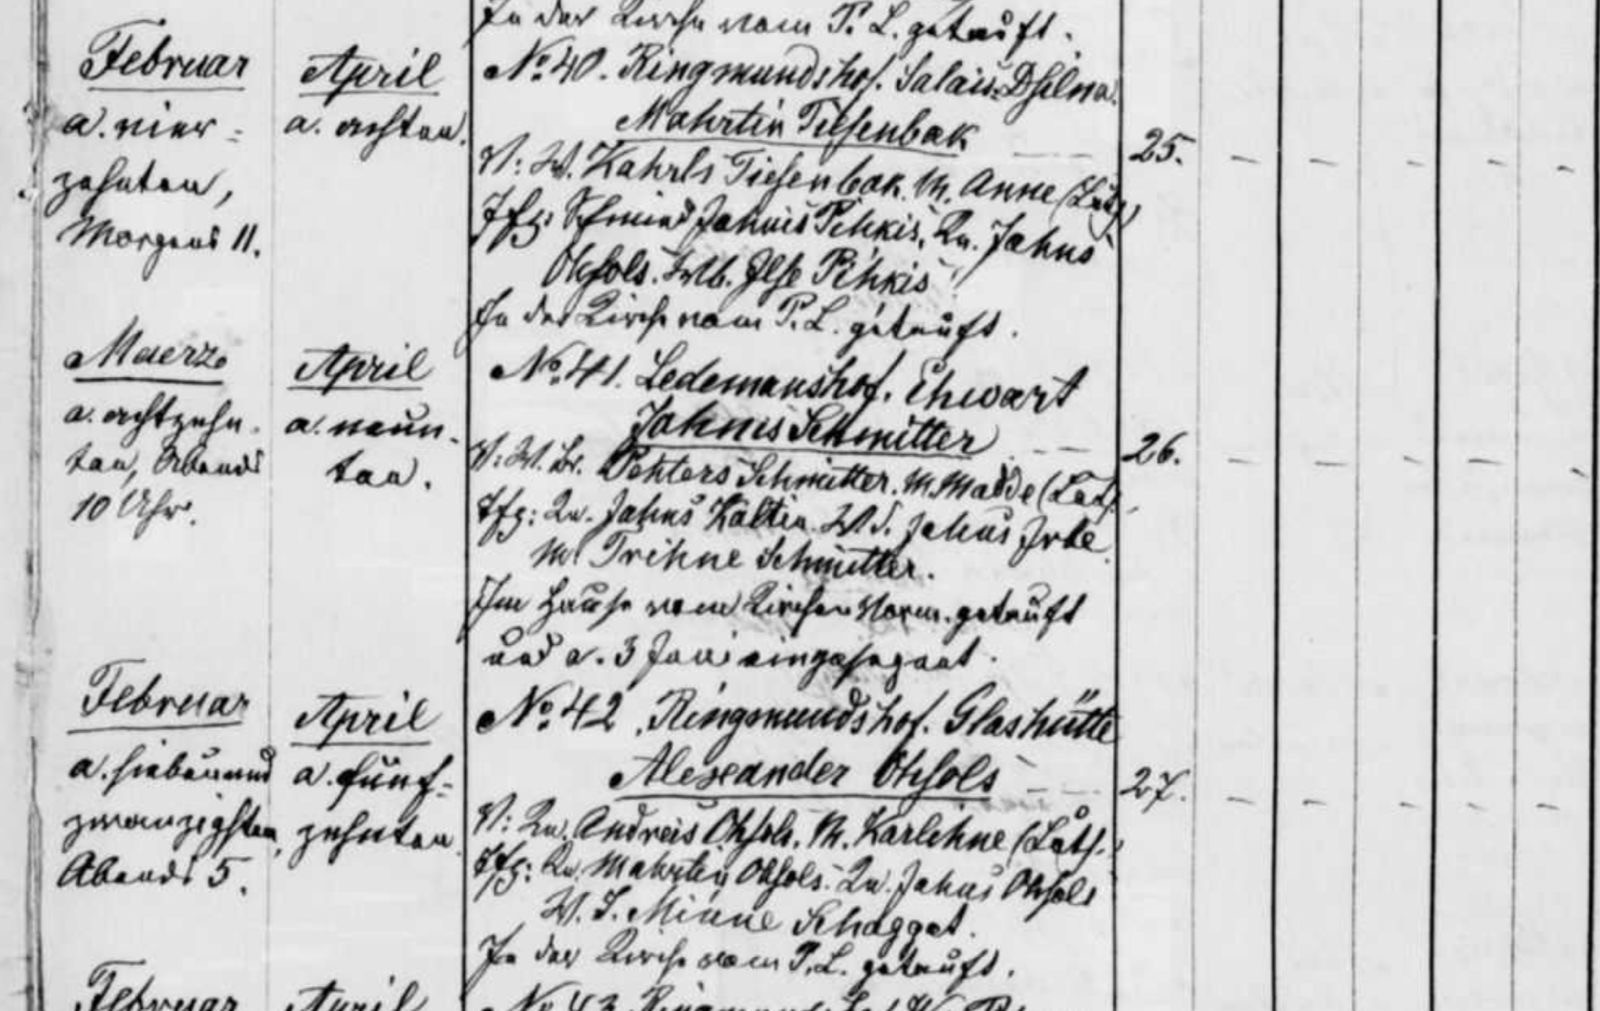 In der Kirche vom P. L. getauft.
Februar
a. vier-
zehnten,
Morgens 11.
April
a. achten.
No. 40. Ringmundshof. Salais-Dselna.
Mahrtin Tiesenbak
V: W. Kahrls Tiesenbak. M. Anne (Luth.)
Tfz: Schmied Jahnis Pihkis, Kn. Jahns
Ohsols. Wb. Ilse Pihkis
In der Kirche vom P. L. getauft.
25.
Maerz
a. achtzehn-
ten, Abends
10 Uhr.
April
a. neun-
ten.
No. 41. Ledemanshof. Ehwart
Jahnis Schmitter
V: W. Br. Pehters Schmitter. M. Madde (Luth.
Tfz: Kn. Jahns Kaltin. W. S. Jahns
M. Trihne Schmitter.
Im Hause vom Kirchen Vorm. getauft
und a. 3 Juni eingesegnet.
26.
Februar
a. siebenund
zwanzigsten,
Abends 5.
April
a. fünf-
zehnten.
No. 42. Ringmundshof. Glashütte
Alexander Ohsols
V: Kn. Andreis Ohsols. M. Karlihne (Luth.)
Tfz: Kn. Mahrtin Ohsols. Kn. Jahns Ohsols
W. T. Minne Schaggat.
In der Kirche vom P. L. getauft.
27.
Februar
April
No. 43. Ringmundshof